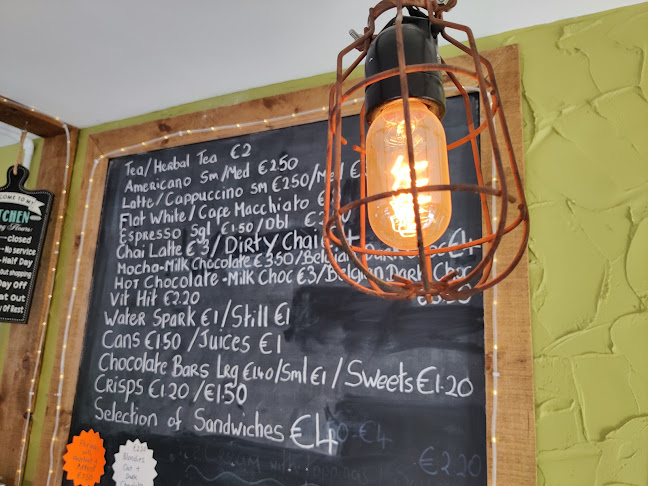 COME TO MY
TCHEN
closed
No service
Half Day
but shopping
Day Off
Eat Out
Day Of Rest
Tea/Herbal Tea €2
Americano Sm/Med €2.50
Latte/Cappuccino SM €2.50/Med
Flat White/Cafe Macchiato €
Espresso Sgl €1.50/Dbl €2
Chai Latte €3/Dirty Chai
Mocha-Milk Chocolate €3.50/Belgian Dark Choc €4
Hot Chocolate-Milk Choc €3/Belgian Dark Choc
Vit Hit €2.20
Water Spark €1/Still €1
Cans €1.50/Juices €1
Chocolate Bars Lrg €1.40/Sml €1/Sweets €1.20
Crisps €1.20/€1.50
Selection of Sandwiches €4
€2.20